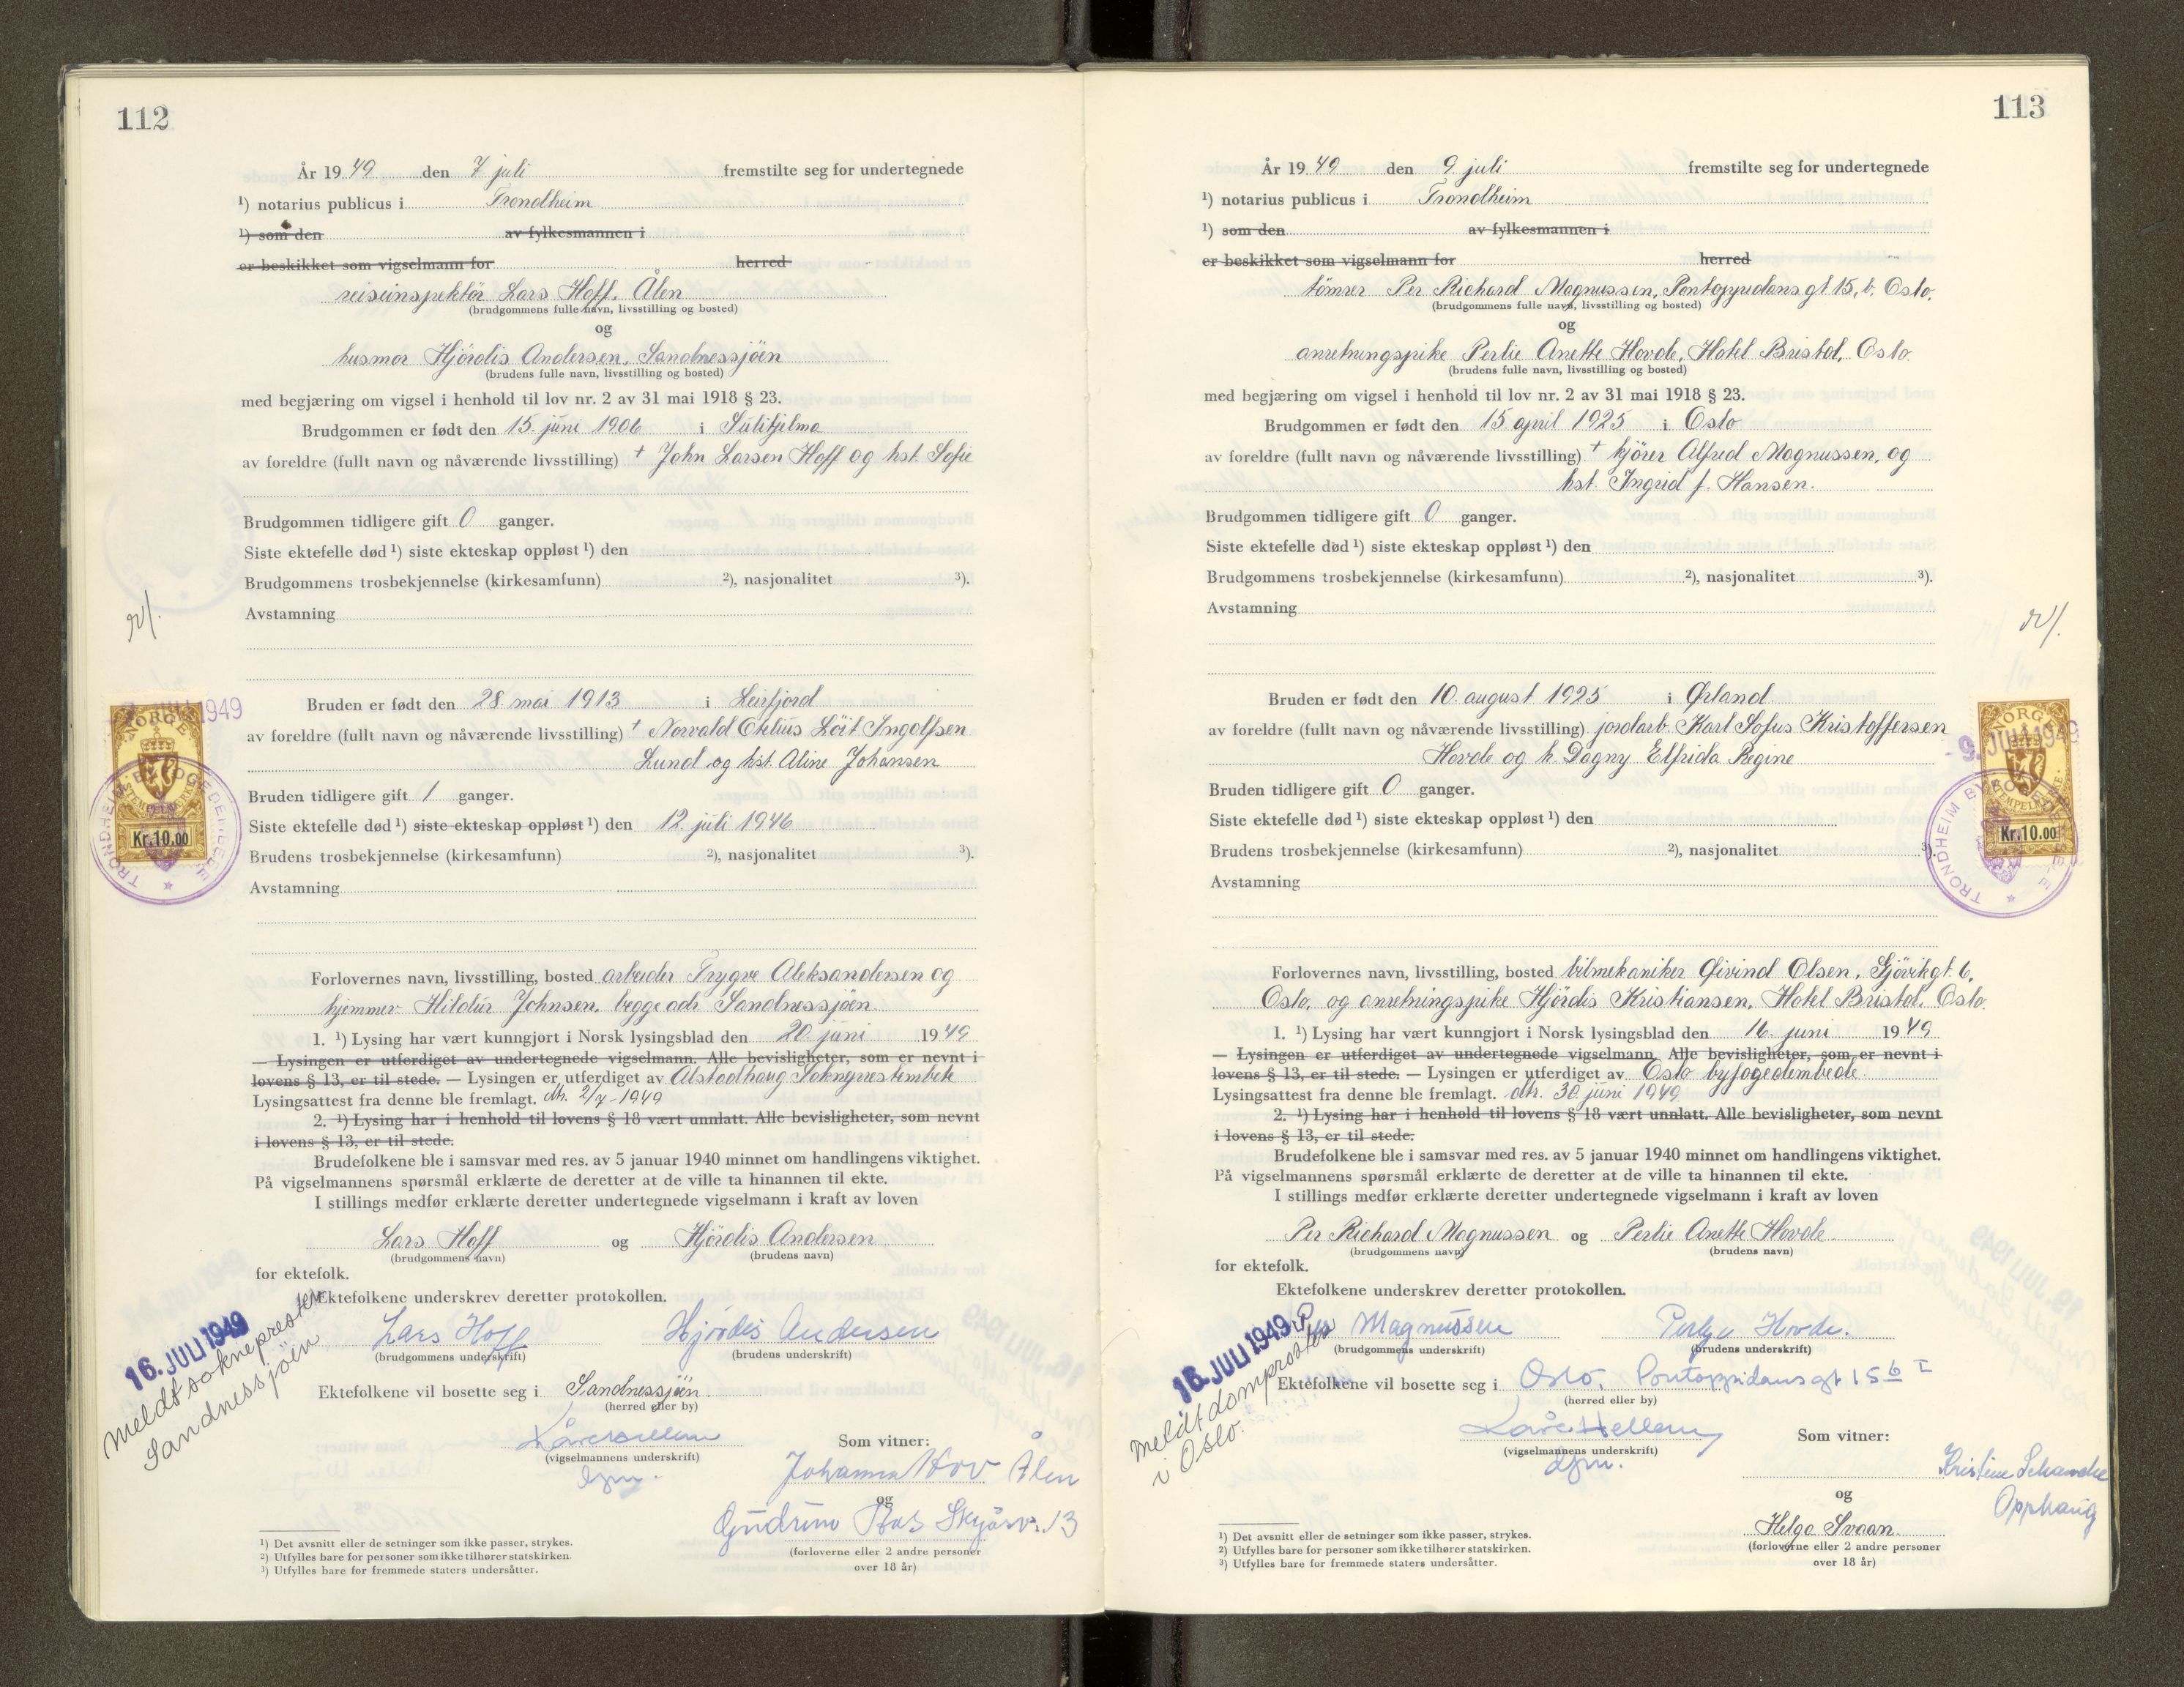 112
År 1949 den 7 juli fremstilte seg for undertegnede
¹) notarius publicus i Trondheim
¹) som den av fylkesmannen i
er beskikket som vigselmann for herred
reiseinspektör Lars Hoff, Ålen
(brudgommens fulle navn, livsstilling og bosted)
og
husmor Hjördis Andersen, Sandnessjöen
(brudens fulle navn, livsstilling og bosted)
med begjæring om vigsel i henhold til lov nr. 2 av 31 mai 1918 § 23.
Brudgommen er født den 15. juni 1906 i Sulitjelma
av foreldre (fullt navn og nåværende livsstilling) + John Larsen Hoff og hst. Sofie
Brudgommen tidligere gift 0 ganger.
Siste ektefelle død ¹) siste ekteskap oppløst ¹) den
Brudgommens trosbekjennelse (kirkesamfunn) ²), nasjonalitet ³).
Avstamning
Bruden er født den 28. mai 1913 i Leirfjord
av foreldre (fullt navn og nåværende livsstilling) + Norvald Löit Ingolfsen
Lund og hst. Aline Johansen
Bruden tidligere gift 1 ganger.
Siste ektefelle død ¹) siste ekteskap oppløst ¹) den 12. juli 1946
Brudens trosbekjennelse (kirkesamfunn) ²), nasjonalitet ³).
Avstamning
NORGE
STEMPELMERKE
Kr.10.00
TRONDHEIM BYFOGEDEMBEDE
Forlovernes navn, livsstilling, bosted arbeider Trygve Aleksandersen og
hjemmev. Hildur Johnsen, begge adr. Sandnessjöen
1. ¹) Lysing har vært kunngjort i Norsk lysingsblad den 20. juni 1949
— Lysingen er utferdiget av undertegnede vigselmann. Alle bevisligheter, som er nevnt i
lovens § 13, er til stede. — Lysingen er utferdiget av Alstadhaug Sokneprestembete
Lysingsattest fra denne ble fremlagt. dtr. 2/7-1949
2. ¹) Lysing har i henhold til lovens § 18 vært unnlatt. Alle bevisligheter, som nevnt
i lovens § 13, er til stede.
Brudefolkene ble i samsvar med res. av 5 januar 1940 minnet om handlingens viktighet.
På vigselmannens spørsmål erklærte de deretter at de ville ta hinannen til ekte.
I stillings medfør erklærte deretter undertegnede vigselmann i kraft av loven
Lars Hoff og Hjördis Andersen
(brudgommens navn) (brudens navn)
for ektefolk.
Ektefolkene underskrev deretter protokollen.
Lars Hoff Hjördis Andersen
(brudgommens underskrift) (brudens underskrift)
16. JULI 1949
Meldt soknepresten
Sandnessjöen
Ektefolkene vil bosette seg i Sandnessjöen
(herred eller by)
Kåre Hellem Som vitner:
(vigselmannens underskrift)
dfm. Johanna Hov Ålen
og
Gudrun Skyåsv. 13
(forloverne eller 2 andre personer
over 18 år)
¹) Det avsnitt eller de setninger som ikke passer, strykes.
²) Utfylles bare for personer som ikke tilhører statskirken.
³) Utfylles bare for fremmede staters undersåtter.
113
År 1949 den 9 juli fremstilte seg for undertegnede
¹) notarius publicus i Trondheim
¹) som den av fylkesmannen i
er beskikket som vigselmann for herred
tömrer Per Richard Magnussen, Pontoppidans gt 15, b, Oslo.
(brudgommens fulle navn, livsstilling og bosted)
og
anretningspike Perlie Anette Hovde, Hotel Bristol, Oslo
(brudens fulle navn, livsstilling og bosted)
med begjæring om vigsel i henhold til lov nr. 2 av 31 mai 1918 § 23.
Brudgommen er født den 15 april 1925 i Oslo
av foreldre (fullt navn og nåværende livsstilling) + kjörer Alfred Magnussen, og
hst. Ingrid f. Hansen.
Brudgommen tidligere gift 0 ganger.
Siste ektefelle død ¹) siste ekteskap oppløst ¹) den
Brudgommens trosbekjennelse (kirkesamfunn) ²), nasjonalitet ³).
Avstamning
Bruden er født den 10. august 1925 i Ørland
av foreldre (fullt navn og nåværende livsstilling) jordarb. Karl Sofus Kristoffersen
Hovde og h. Dagny Elfrida Regine
Bruden tidligere gift 0 ganger.
Siste ektefelle død ¹) siste ekteskap oppløst ¹) den
Brudens trosbekjennelse (kirkesamfunn) ²), nasjonalitet ³).
Avstamning
9. JULI 1949
NORGE
STEMPELMERKE
Kr.10.00
TRONDHEIM BYFOGEDEMBEDE
Forlovernes navn, livsstilling, bosted bilmekaniker Øivind Olsen, Gjövikgt. 6,
Oslo, og anretningspike Hjördis Kristiansen, Hotel Bristol, Oslo.
1. ¹) Lysing har vært kunngjort i Norsk lysingsblad den 16. juni 1949
— Lysingen er utferdiget av undertegnede vigselmann. Alle bevisligheter, som er nevnt i
lovens § 13, er til stede. — Lysingen er utferdiget av Oslo byfogedembede
Lysingsattest fra denne ble fremlagt. dtr. 30. juni 1949
2. ¹) Lysing har i henhold til lovens § 18 vært unnlatt. Alle bevisligheter, som nevnt
i lovens § 13, er til stede.
Brudefolkene ble i samsvar med res. av 5 januar 1940 minnet om handlingens viktighet.
På vigselmannens spørsmål erklærte de deretter at de ville ta hinannen til ekte.
I stillings medfør erklærte deretter undertegnede vigselmann i kraft av loven
Per Richard Magnussen og Perlie Anette Hovde
(brudgommens navn) (brudens navn)
for ektefolk.
Ektefolkene underskrev deretter protokollen.
Per Magnussen Hovde.
(brudgommens underskrift) (brudens underskrift)
16. JULI 1949
Meldt domprosten
i Oslo.
Ektefolkene vil bosette seg i Oslo, Pontoppidansgt 15 b I
(herred eller by)
Kåre Hellem Som vitner:
(vigselmannens underskrift)
dfm. Kristine
Opphaug
og
Helga Svaan.
(forloverne eller 2 andre personer
over 18 år)
¹) Det avsnitt eller de setninger som ikke passer, strykes.
²) Utfylles bare for personer som ikke tilhører statskirken.
³) Utfylles bare for fremmede staters undersåtter.